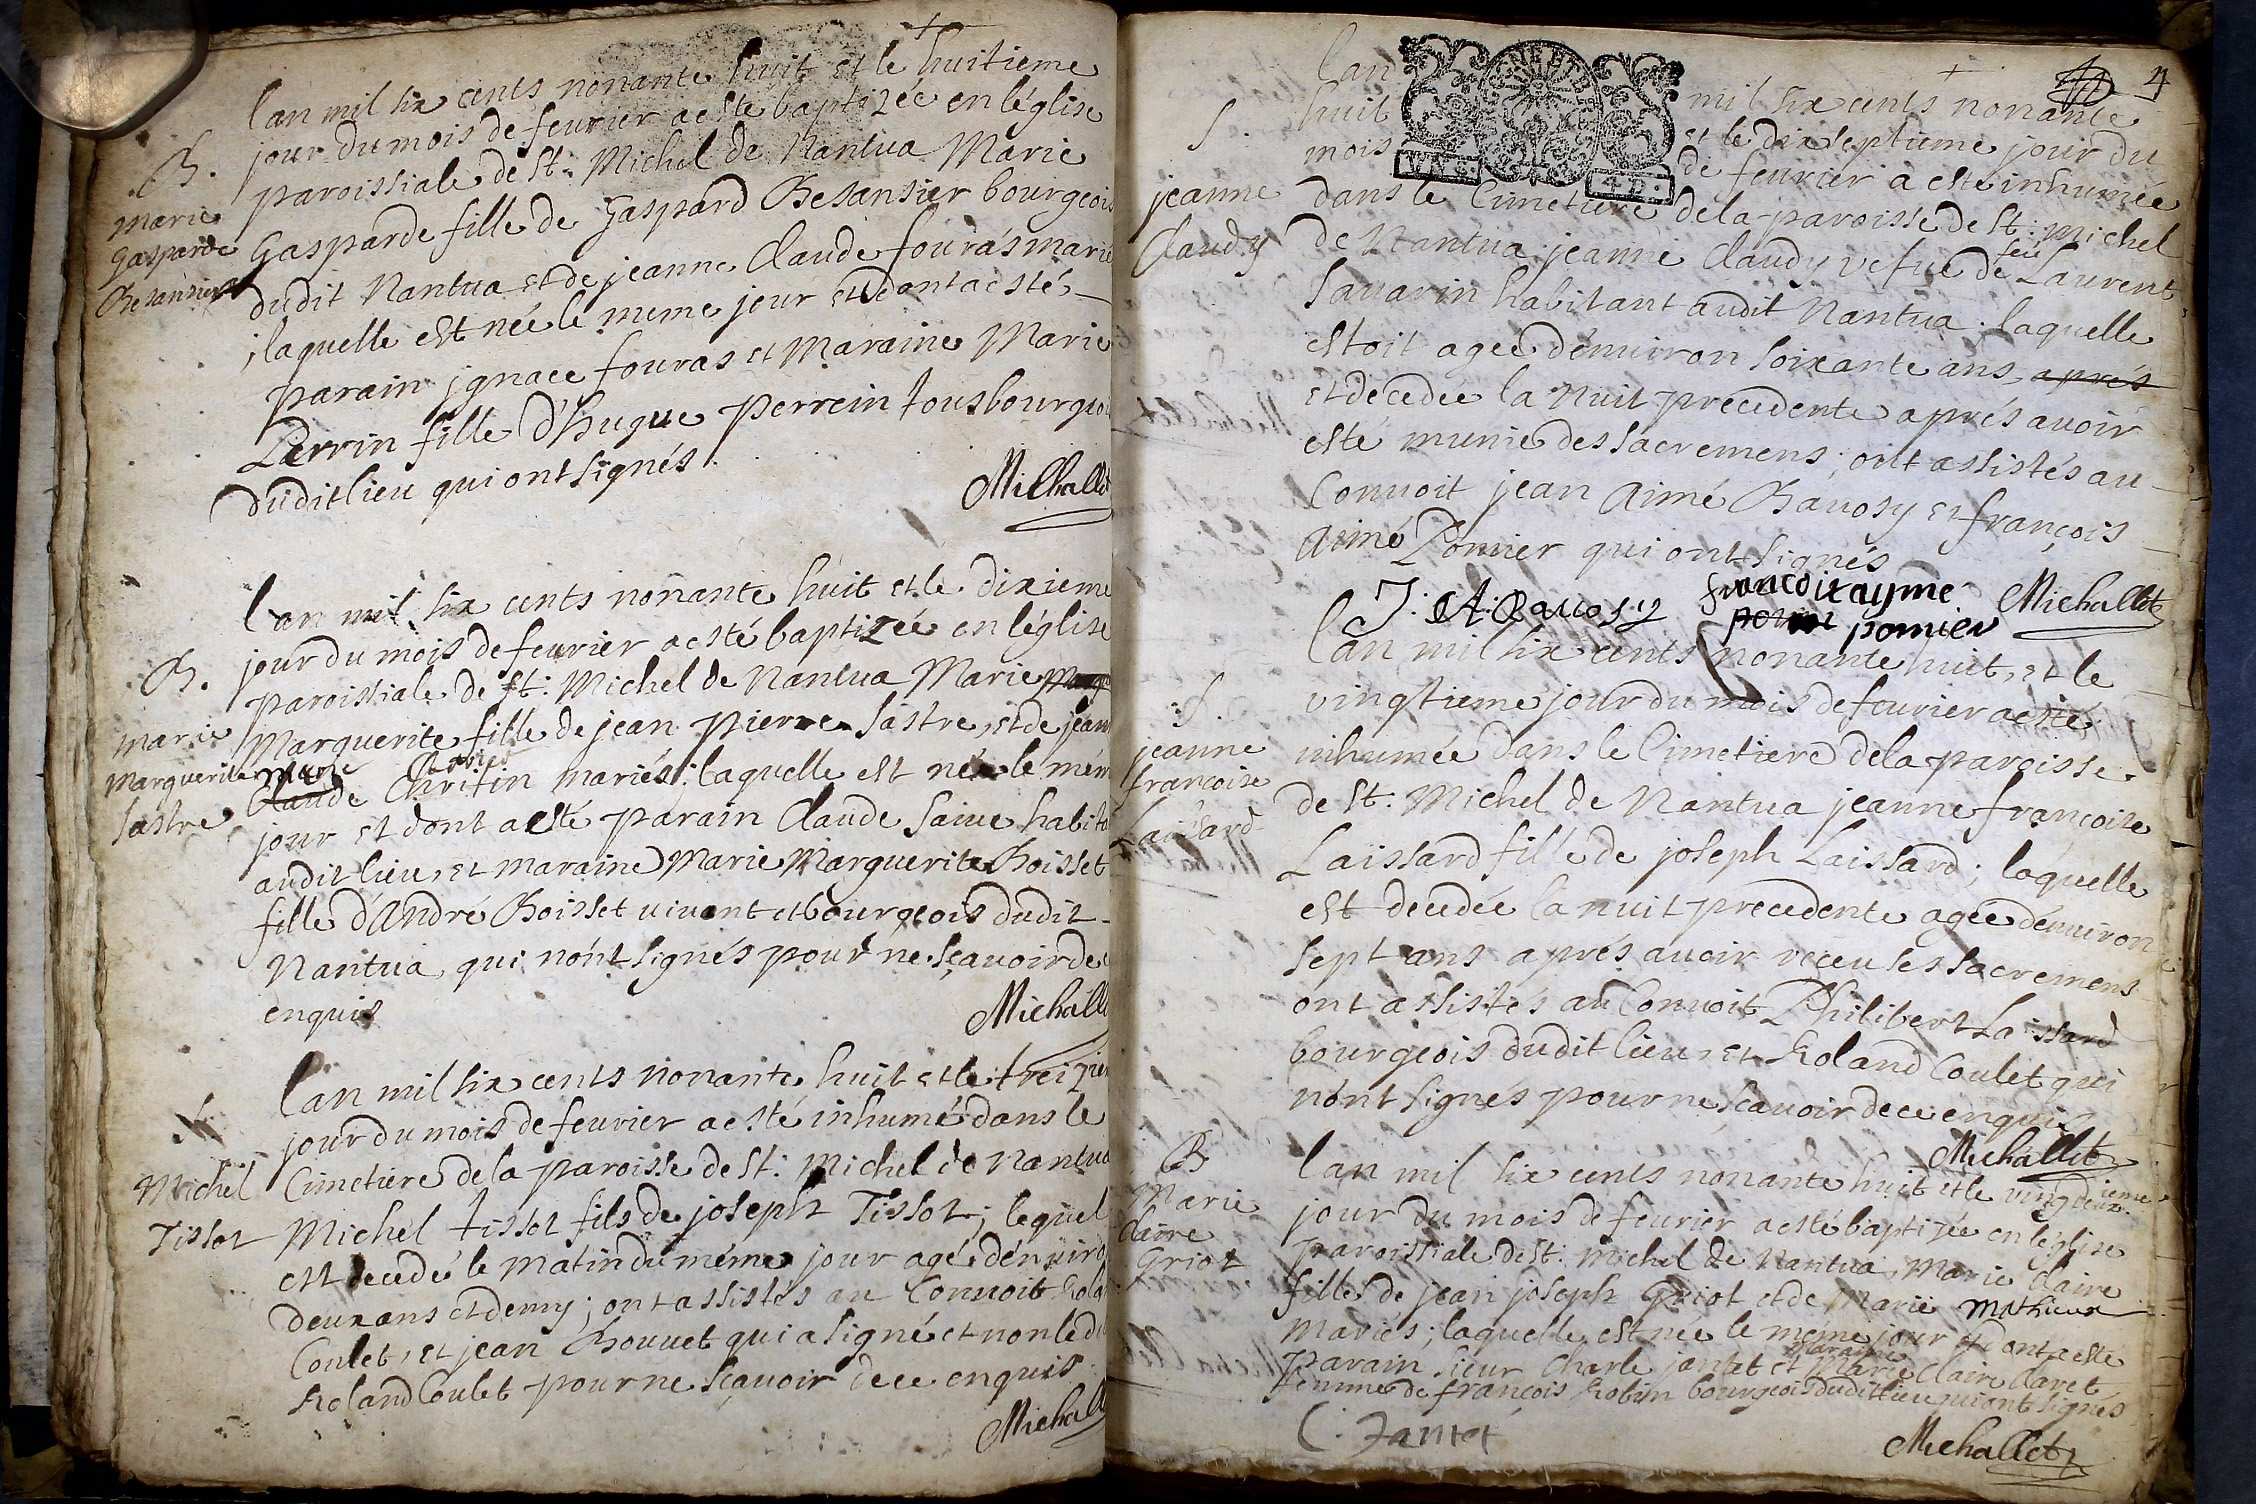 lan mil six cents nonante huit et le huitieme
jour du mois de feurier a esté baptizée en léglise
B. paroissiale de St. Michel de Nantua Marie
Marie
gasparde
Besansier
Gasparde fille de Gaspard Besansier bourgeois
dudit Nantua et de jeanne Claude fouras marié
; laquelle est née le meme jour et dont a esté
parain jgnace fouras et Maraine Marie
Perrin fille d'hugue perrein tous bourgeoi
dudit lieu qui ont signés.
Michallet
lan mil six cents nonante huit et le dixieme
jour du mois de feurier a esté baptizée en léglise
B. paroissiale de St. Michel de Nantua Marie
marie
marguerite
sastre
Marguerite fille de jean pierre sastre, et de jean
marie Claude Chritin mariés; laquelle est née le mém
jour et dont a esté parain Claude Saiue habita
audit lieu, et maraine Marie Marguerite Boisset
fille d'André Boisset uiuant et bourgeois dudit
Nantua, qui nónt signés pour ne sçauoir de
enquis
Michall
lan mil six cents nonante huit et le treizie
jour du mois de feurier a esté inhumé dans le
S.
Michel
Tissot
Cimetiere de la paroisse de St. Michel de Nantua
Michel tissot fils de joseph Tissot; lequel
est decedé le matin du méme jour agé dénuiro
deux ans et demy; ont assistés au Conuoit Rola
Coulet, et jean Bouuet qui a signé et non led
Roland Coulet pour ne sçauoir de ce enquis
Michall
4
lan mil six cents nonante
huit et le dix septieme jour du
mois de feurier a esté inhumée
UN S. 4 D.
S.
jeanne
Claudy
dans le Cimetiere de la paroisse de St. Michel
de Nantua jeanne Claudy vefue de feu Laurent
Sauarin habitant audit Nantua. laquelle
estoit agée dénuiron soixante ans, aprés
et decedée la nuit precedente aprés auoir
esté munie des sacremens; ont assistés au
Conuoit jean Aimé Rauosy et françois
Aimé Pomier qui ont signés
J. A. Rauosy francoix ayme pomier Michallet
lan mil six cents nonante huit, et le
vingtieme jour du mois de feurier a esté
S.
jeanne
francoise
Laissard
inhumée dans le Cimetiere de la paroisse
de St. Michel de Nantua jeanne françoise
Laissard fille de joseph Laissard; laquelle
est decedée la nuit precedente agée dénuiron
sept ans aprés auoir receu les sacremens
ont assistés au Conuoit Philibert Laissard
bourgeois dudit lieu, et Roland Coulet qui
nónt signés pour ne sçauoir de ce enquis
Michallet
B
Marie
claire
Griot
lan mil six cents nonante huit et le vingt deuxieme
jour du mois de feurier a esté baptizée en léglise
paroissiale de St. Michel de Nantua, Marie Claire
fille de jean joseph Griot et de Marie Mathieux
Mariés; laquelle est née le méme jour et dont a esté
parain sieur Charle jantet et maraine Marie Claire Claret
femme de françois Robin bourgeois dudit lieu qui ont signés
C. Jantet
Michallet